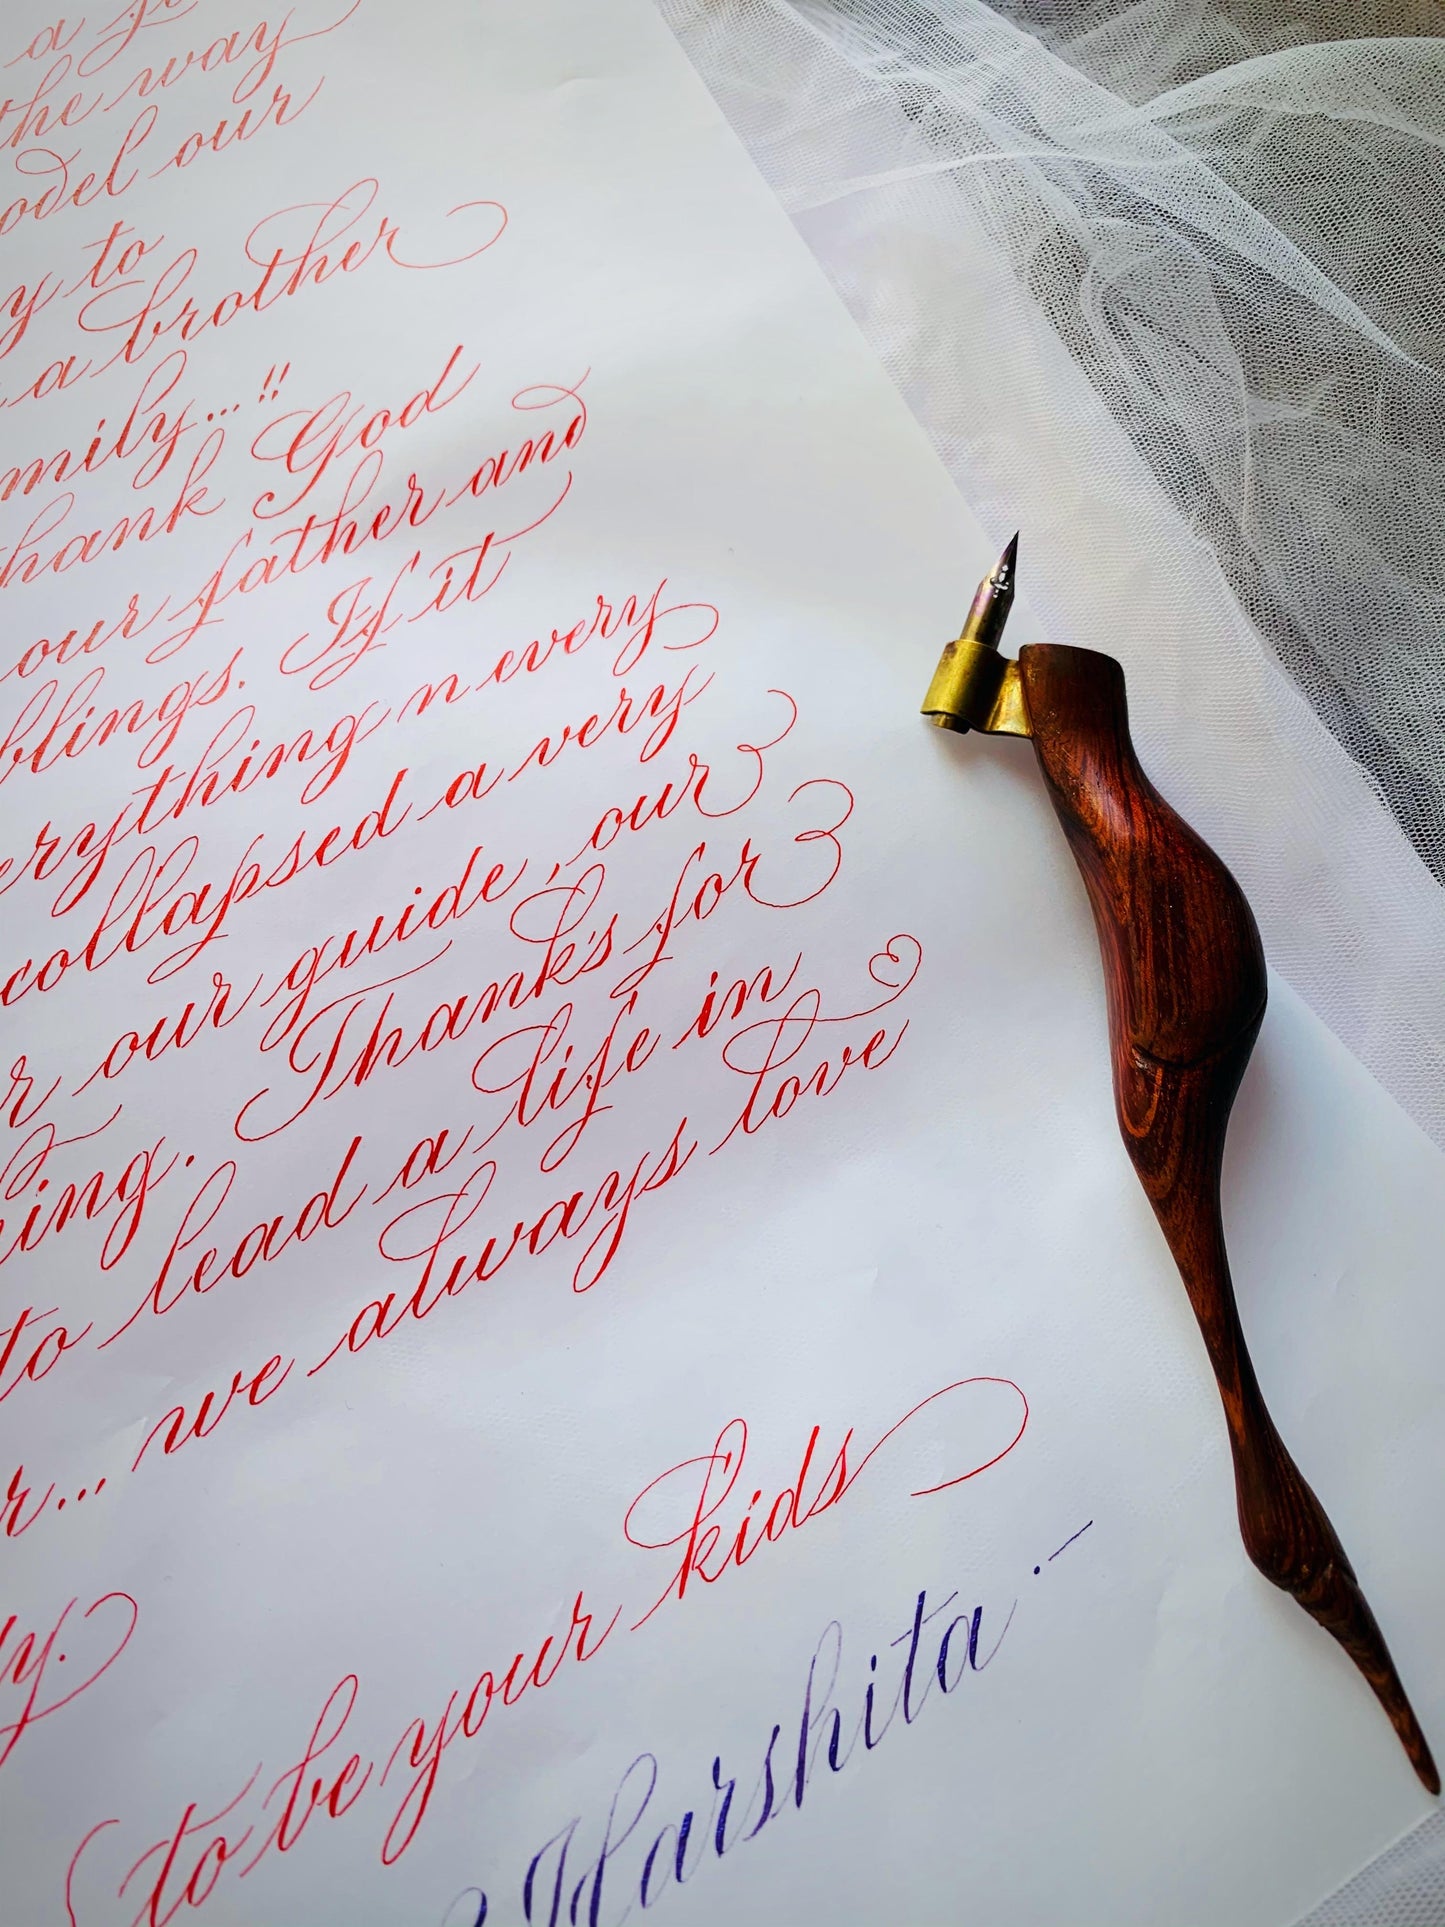 a
the way
odel our
y to
a brother
mily...!!
thank God
our father and
blings. If it
erything n every
collapsed a very
r our guide, our
ing. Thank's for
to lead a life in
r... we always love
ly.
to be your kids
Harshita .-